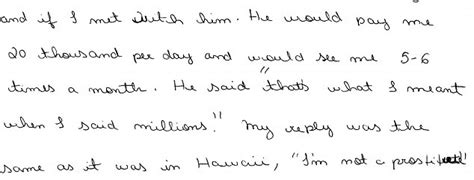 and if I met with him. He would pay me
20 thousand per day and would see me 5-6
times a month. He said "thats what I meant
when I said millions." My reply was the
same as it was in Hawaii, "I'm not a prostitute"